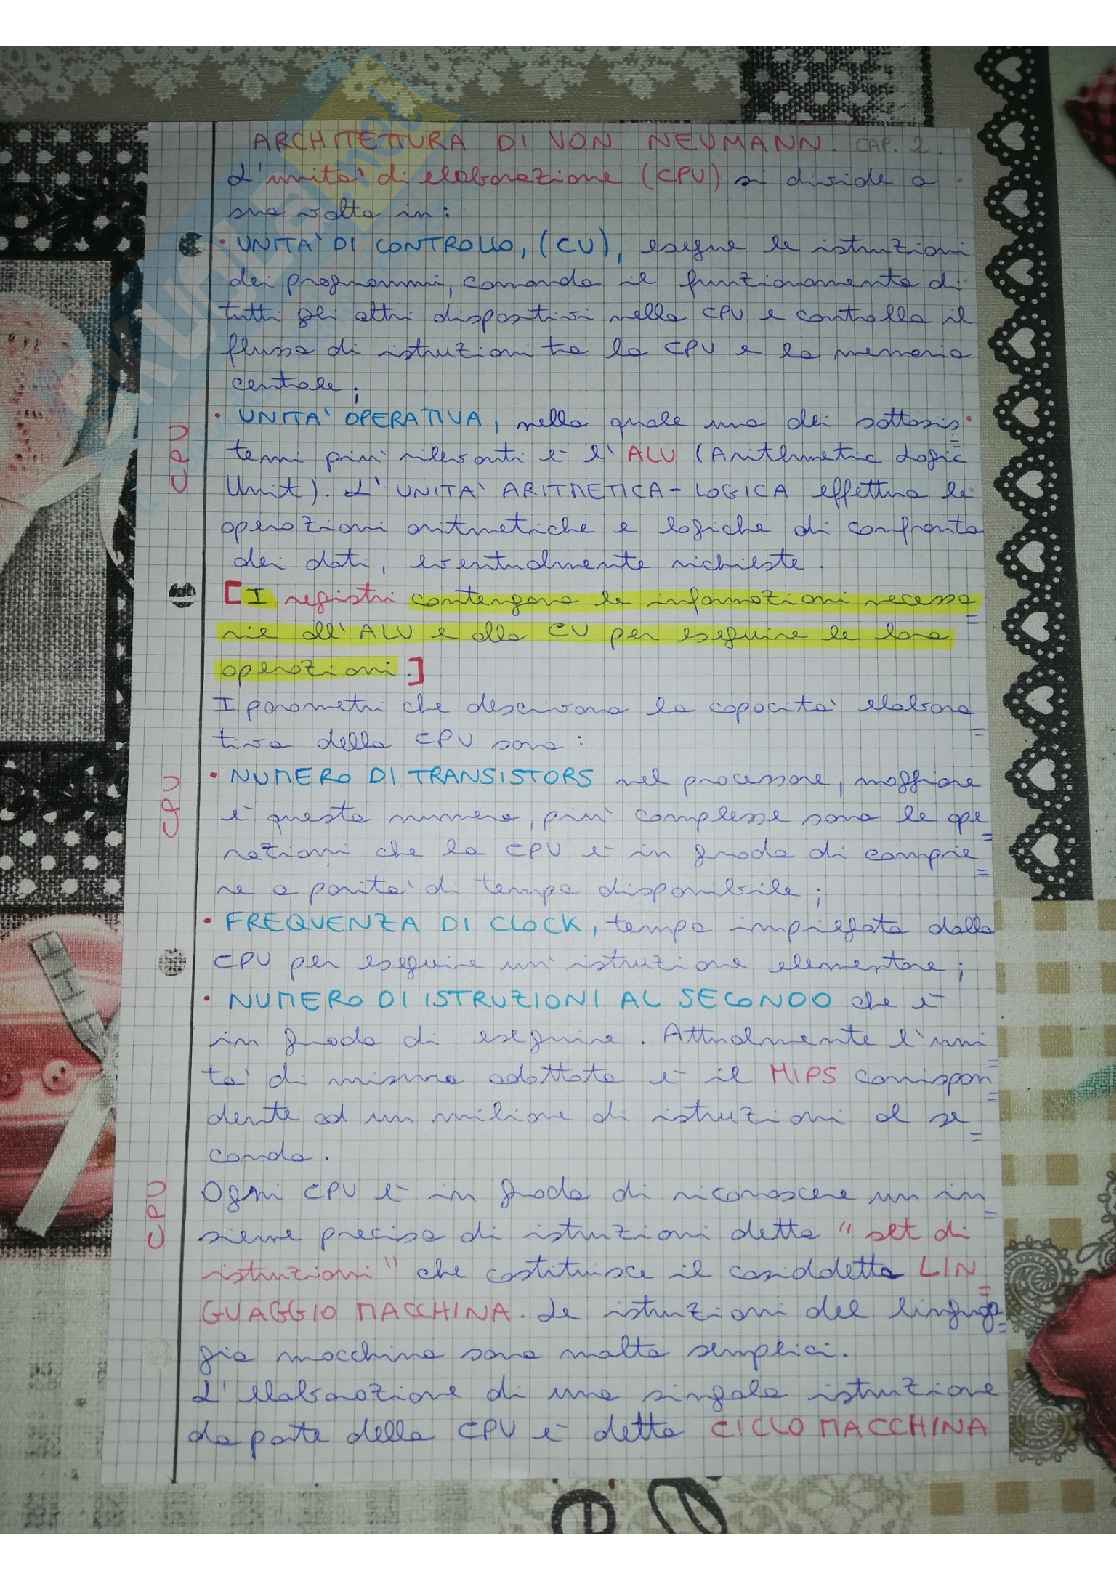 ARCHITETTURA DI VON NEUMANN. CAP. 2.
L'unità di elaborazione (CPU) si divide a
sua volta in:
• UNITA' DI CONTROLLO, (CU), esegue le istruzioni
dei programmi, comanda il funzionamento di
tutti gli altri dispositivi nella CPU e controlla il
flusso di istruzioni tra la CPU e la memoria
centrale;
• UNITA' OPERATIVA, nella quale uno dei sottosis=
temi più rilevanti è l'ALU (Arithmetic Logic
Unit). L'UNITA' ARITMETICA-LOGICA effettua le
operazioni aritmetiche e logiche di confronto
dei dati, eventualmente richieste.
[I registri contengono le informazioni necessa=
rie all'ALU e alla CU per eseguire le loro
operazioni.]
I parametri che descrivono la capacità elabora=
tiva della CPU sono:
• NUMERO DI TRANSISTORS nel processore, maggiore
è questo numero, più complesse sono le ope=
razioni che la CPU è in grado di compie=
re a parità di tempo disponibile;
• FREQUENZA DI CLOCK, tempo impiegato dalla
CPU per eseguire un'istruzione elementare;
• NUMERO DI ISTRUZIONI AL SECONDO che è
in grado di eseguire. Attualmente l'uni=
tà di misura adottata è il MIPS corrispon=
dente ad un milione di istruzioni al se=
condo.
Ogni CPU è in grado di riconoscere un in=
sieme preciso di istruzioni detto "set di
istruzioni" che costituisce il cosiddetto LIN=
GUAGGIO MACCHINA. Le istruzioni del lingua=
gio macchina sono molto semplici.
L'elaborazione di una singola istruzione
da parte della CPU è detta CICLO MACCHINA
CPU
CPU
CPU